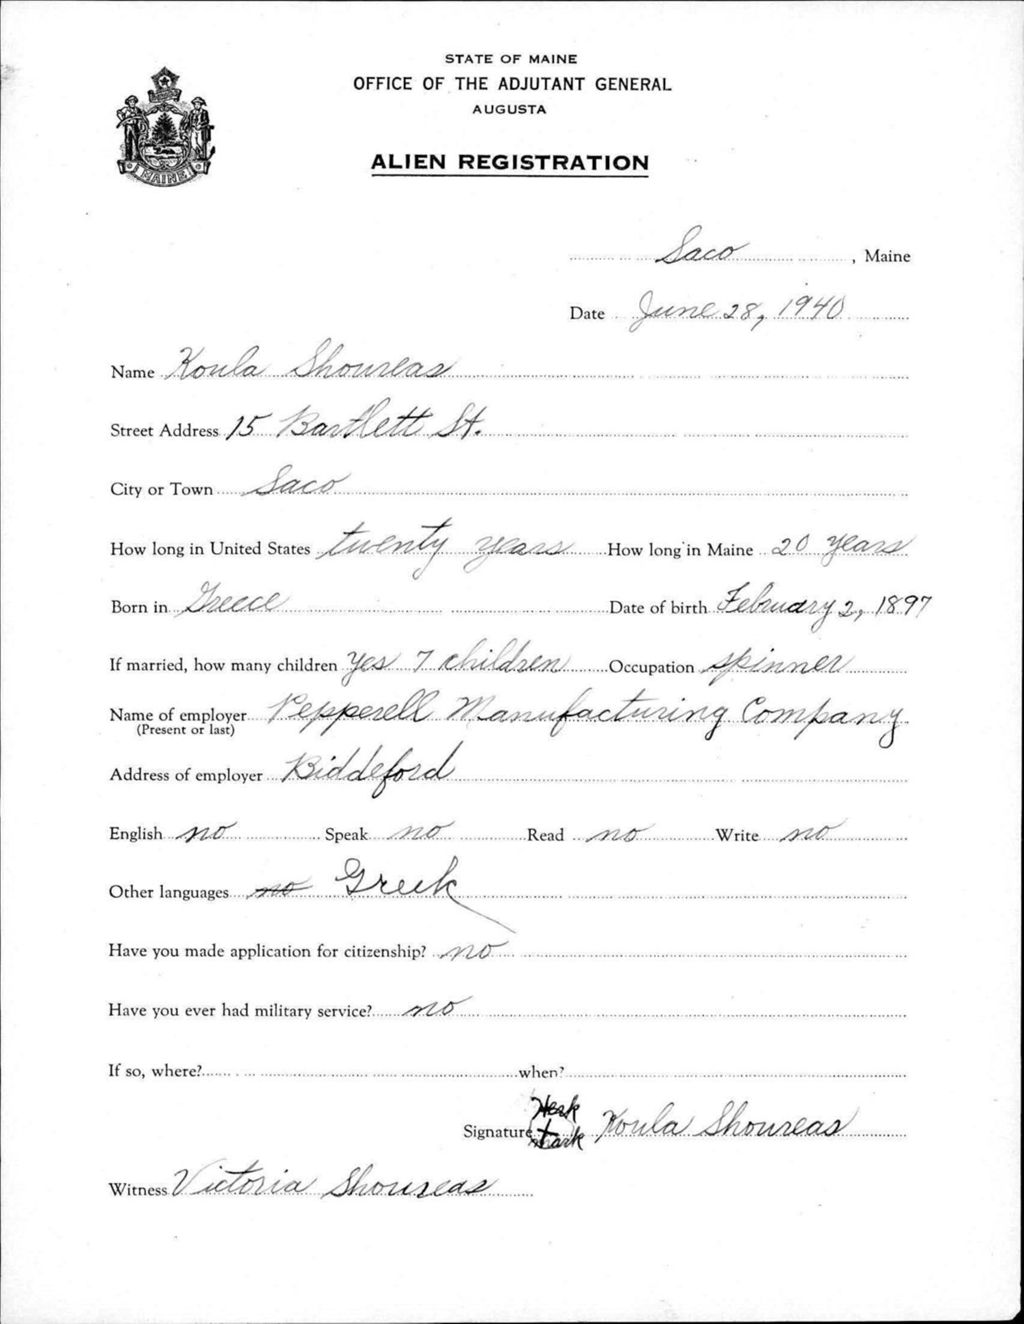 STATE OF MAINE
OFFICE OF THE ADJUTANT GENERAL
AUGUSTA
ALIEN REGISTRATION
MAINE
Saco, Maine
Date June 28, 1940
Name Koula Shoureas
Street Address 15 Bartlett St.
City or Town Saco
How long in United States twenty years How long in Maine 20 years
Born in Greece Date of birth February 2, 1897
If married, how many children yes 7 children Occupation spinner
Name of employer Pepperell Manufacturing Company
(Present or last)
Address of employer Biddeford
English no Speak no Read no Write no
Other languages no Greek
Have you made application for citizenship? no
Have you ever had military service? no
If so, where? when?
Signature mark Koula Shoureas
Witness Victoria Shoureas